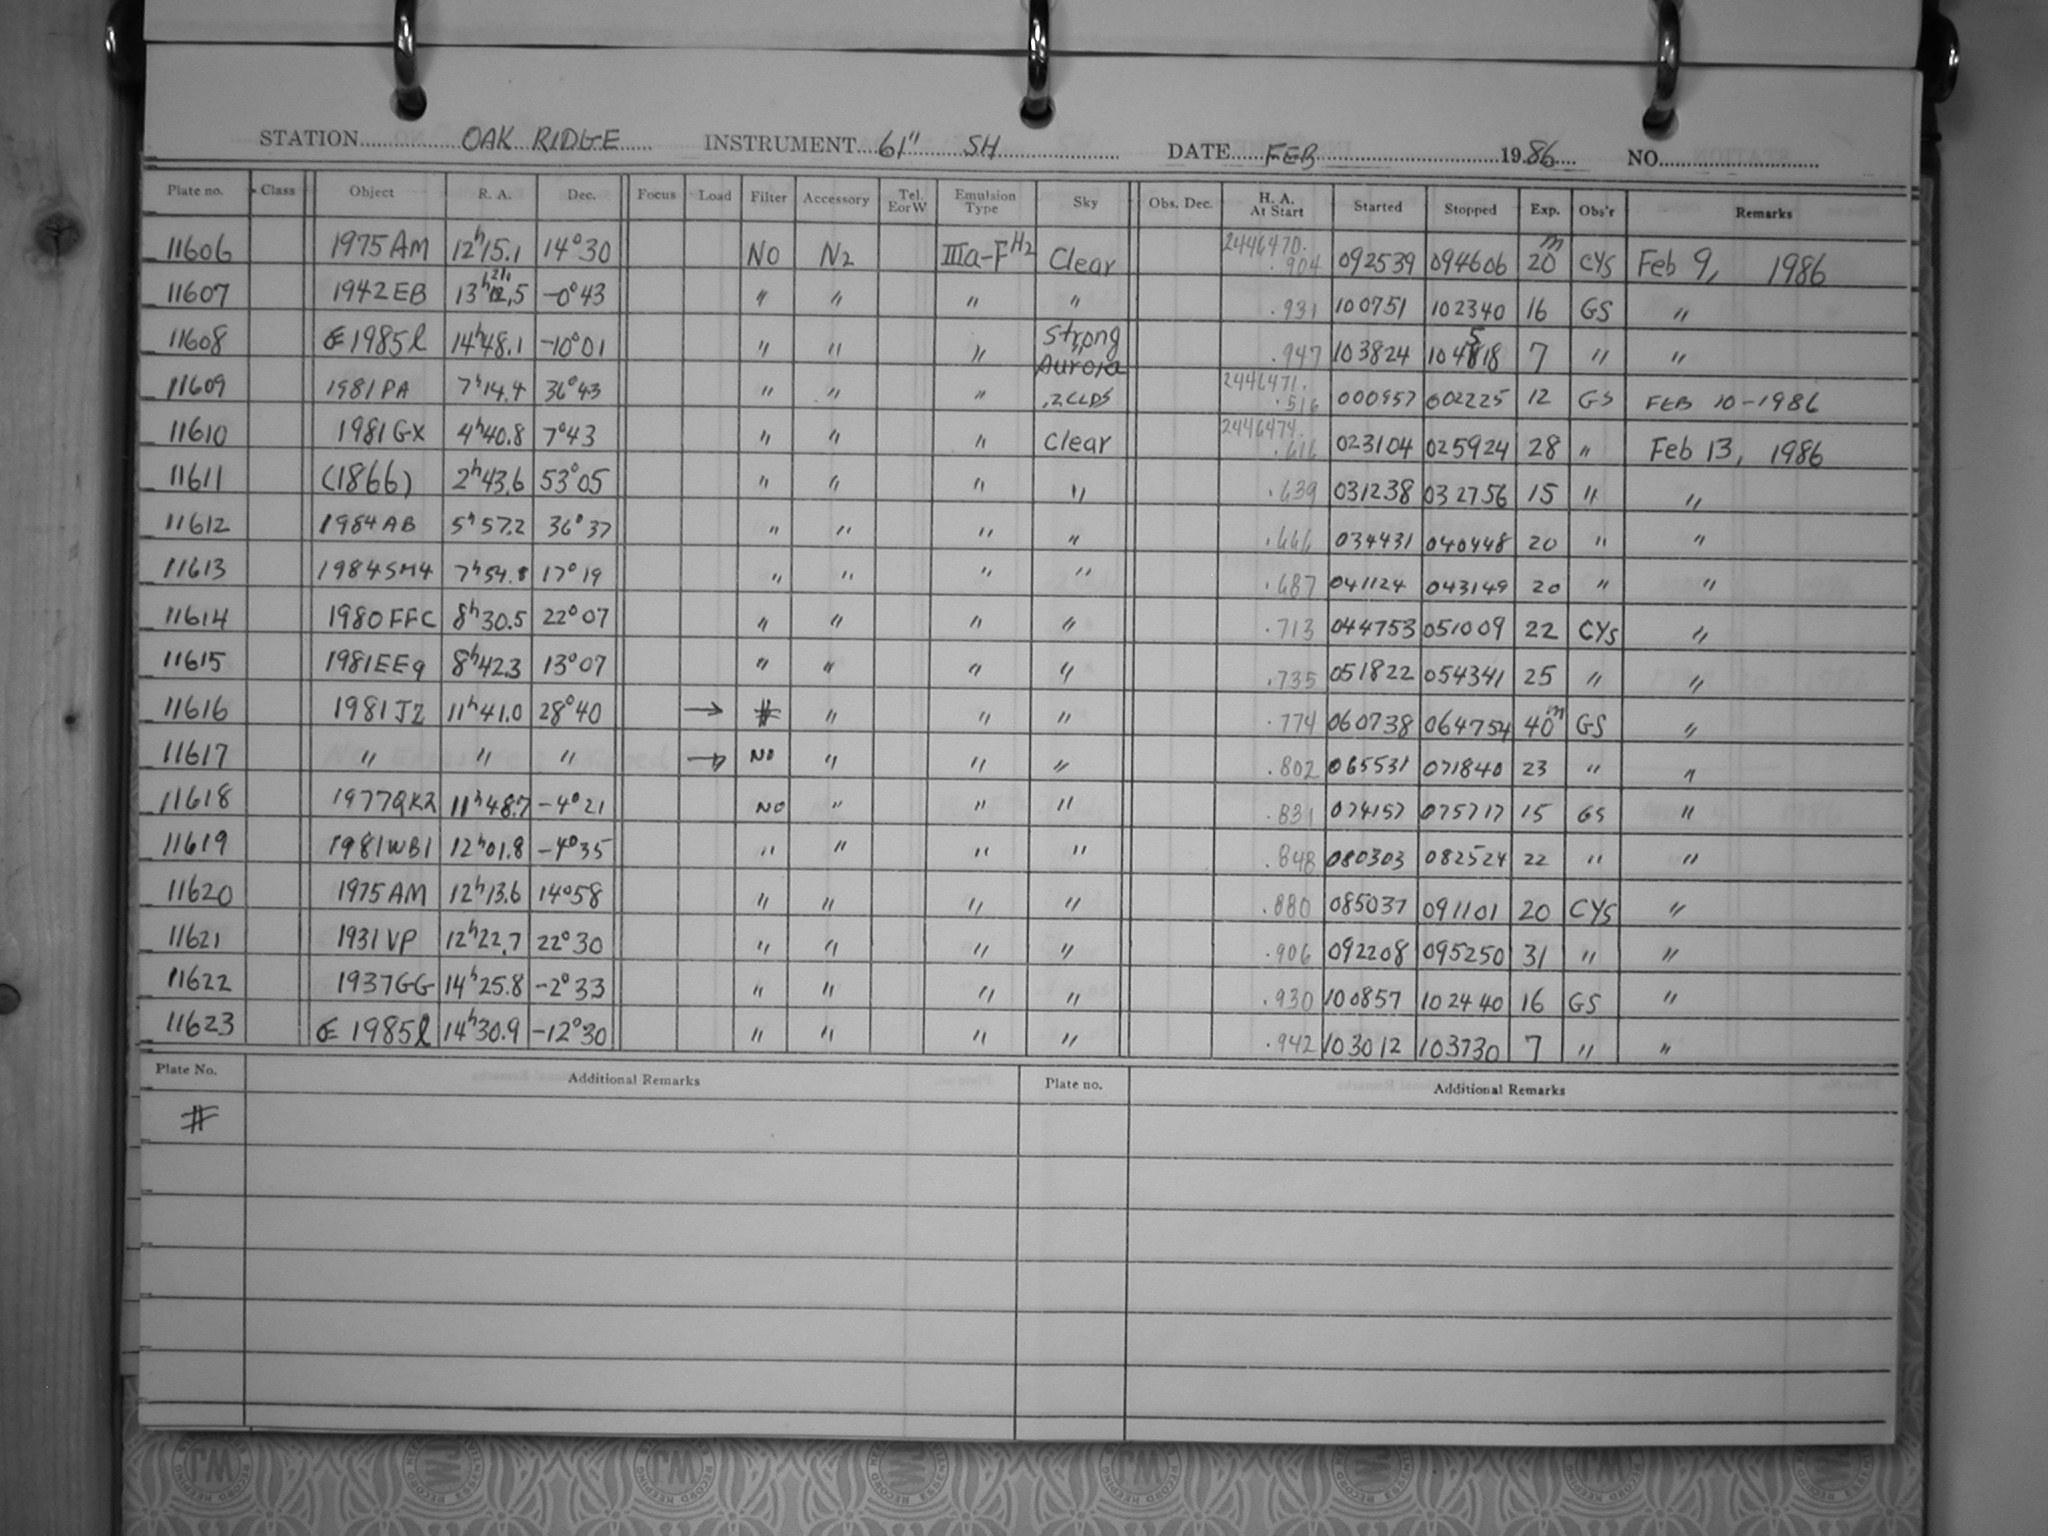 STATION OAK RIDGE INSTRUMENT 61" SH DATE FEB 1986 NO.
Plate no. Class Object R. A. Dec. Focus Load Filter Accessory Tel. E or W Emulsion Type Sky Obs. Dec. H. A. At Start Started Stopped Exp. Obs'r Remarks
11606 1975AM 12h15.1 14°30 NO N2 IIIa-F H2 Clear 2446470. .904 092539 094606 20m CYS Feb 9, 1986
11607 1942EB 13h21.5 -0°43 " " " " .931 100751 102340 16 GS "
11608 1985l 14h48.1 -10°01 " " " Strong Aurora .947 103824 104518 7 " "
11609 1981PA 7h14.4 36°43 " " " .2 CLDS 2446471. .516 000957 002225 12 GS FEB 10-1986
11610 1981GX 4h40.8 7°43 " " " Clear 2446474. .616 023104 025924 28 " Feb 13, 1986
11611 (1866) 2h43.6 53°05 " " " " .639 031238 032756 15 " "
11612 1984AB 5h57.2 36°37 " " " " .666 034431 040448 20 " "
11613 1984SM4 7h54.8 17°19 " " " " .687 041124 043149 20 " "
11614 1980FFC 8h30.5 22°07 " " " " .713 044753 051009 22 CYS "
11615 1981EE9 8h42.3 13°07 " " " " .735 051822 054341 25 " "
11616 1981JZ 11h41.0 28°40 → # " " " .774 060738 064754 40m GS "
11617 " " " → NO " " " .802 065531 071840 23 " "
11618 1977QK2 11h48.7 -4°21 NO " " " .831 074157 075717 15 GS "
11619 1981WB1 12h01.8 -4°35 " " " " .848 080303 082524 22 " "
11620 1975AM 12h13.6 14°58 " " " " .880 085037 091101 20 CYS "
11621 1931VP 12h22.7 22°30 " " " " .906 092208 095250 31 " "
11622 1937GG 14h25.8 -2°33 " " " " .930 100857 102440 16 GS "
11623 1985l 14h30.9 -12°30 " " " " .942 103012 103730 7 " "
Plate No. Additional Remarks Plate no. Additional Remarks
#